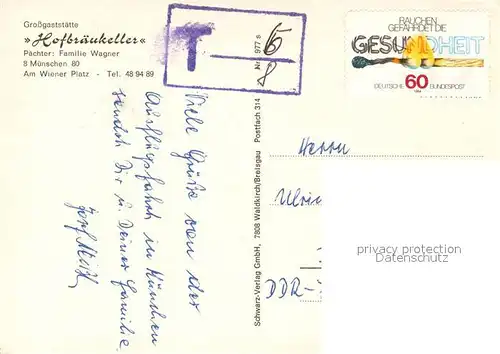 Großgaststätte
»Hofbräukeller«
Pächter: Familie Wagner
8 München 80
Am Wiener Platz - Tel. 48 94 89
T
15
8
Viele Grüße von der
Ausflugsfahrt in München
sendet Dir u. Deiner Familie
Schwarz-Verlag GmbH, 7808 Waldkirch/Breisgau Postfach 314 Nr. 977 s
RAUCHEN
GEFÄHRDET DIE
GESUNDHEIT
DEUTSCHE 60 BUNDESPOST
Herrn
Ulric
DDR-
privacy protection
Datenschutz